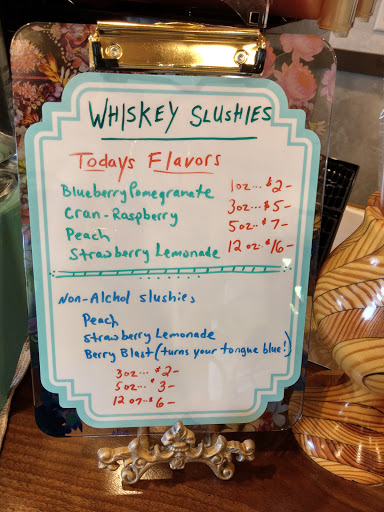 WHISKEY SLUSHIES
Todays Flavors
Blueberry Pomegranate 1oz...$2-
Cran-Raspberry 3oz...$5-
Peach 5oz..$7-
Strawberry Lemonade 12oz.$16-
Non-Alchol slushies
Peach
Strawberry Lemonade
Berry Blast (turns your tongue blue!)
3oz...$2-
5oz...$3-
12oz..$6-